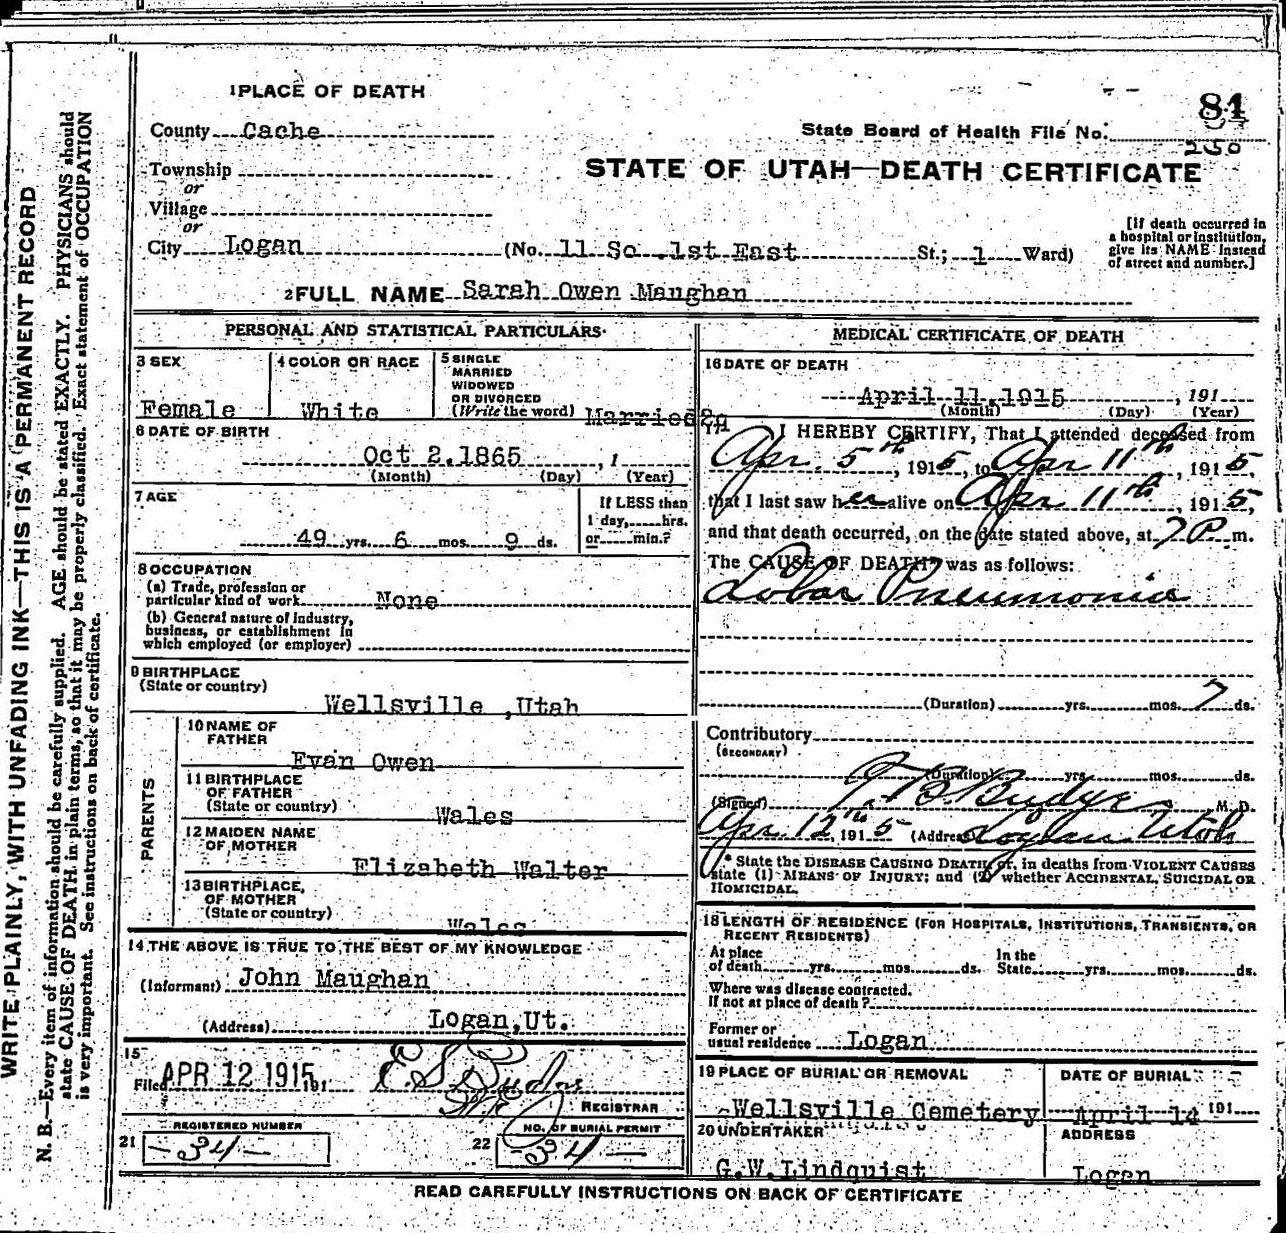 WRITE PLAINLY, WITH UNFADING INK—THIS IS A PERMANENT RECORD
N. B.—Every item of information should be carefully supplied. AGE should be stated EXACTLY. PHYSICIANS should
state CAUSE OF DEATH in plain terms, so that it may be properly classified. Exact statement of OCCUPATION
is very important. See instructions on back of certificate.
1 PLACE OF DEATH
County Cache
Township
or
Village
or
City Logan (No. 11 So .1st East St.; 1 Ward)
81
State Board of Health File No.
250
STATE OF UTAH—DEATH CERTIFICATE
[If death occurred in
a hospital or institution,
give its NAME instead
of street and number.]
2 FULL NAME Sarah Owen Maughan
PERSONAL AND STATISTICAL PARTICULARS
3 SEX
Female
4 COLOR OR RACE
White
5 SINGLE
MARRIED
WIDOWED
OR DIVORCED
(Write the word) Married
6 DATE OF BIRTH
Oct 2.1865 , 1
(Month) (Day) (Year)
7 AGE
49 yrs. 6 mos. 9 ds.
If LESS than
1 day, hrs.
or min.?
8 OCCUPATION
(a) Trade, profession or
particular kind of work None
(b) General nature of industry,
business, or establishment in
which employed (or employer)
9 BIRTHPLACE
(State or country)
Wellsville ,Utah
PARENTS
10 NAME OF
FATHER
Evan Owen
11 BIRTHPLACE
OF FATHER
(State or country)
Wales
12 MAIDEN NAME
OF MOTHER
Elizabeth Walter
13 BIRTHPLACE,
OF MOTHER
(State or country)
Wales
14 THE ABOVE IS TRUE TO THE BEST OF MY KNOWLEDGE
(Informant) John Maughan
(Address) Logan,Ut.
15
Filed APR 12 1915 191
REGISTRAR
REGISTERED NUMBER
21 -34-
NO. OF BURIAL PERMIT
22 -34-
MEDICAL CERTIFICATE OF DEATH
16 DATE OF DEATH
April 11.1915 , 191
(Month) (Day) (Year)
17 I HEREBY CERTIFY, That I attended deceased from
Apr. 5th, 1915, to Apr 11th, 1915,
that I last saw her alive on Apr 11th, 1915,
and that death occurred, on the date stated above, at 7 P. m.
The CAUSE OF DEATH* was as follows:
Lobar Pneumonia
(Duration) yrs. mos. 7 ds.
Contributory
(SECONDARY)
(Duration) yrs. mos. ds.
(Signed) T. B. Budge M. D.
Apr 12th, 1915 (Address) Logan Utah
* State the DISEASE CAUSING DEATH, or, in deaths from VIOLENT CAUSES
state (1) MEANS OF INJURY; and (2) whether ACCIDENTAL, SUICIDAL OR
HOMICIDAL.
18 LENGTH OF RESIDENCE (FOR HOSPITALS, INSTITUTIONS, TRANSIENTS, OR
RECENT RESIDENTS)
At place
of death yrs. mos. ds.
In the
State yrs. mos. ds.
Where was disease contracted.
If not at place of death?
Former or
usual residence Logan
19 PLACE OF BURIAL OR REMOVAL
Wellsville Cemetery
DATE OF BURIAL
April 14 191
20 UNDERTAKER
G.W.Lindquist
ADDRESS
Logan
READ CAREFULLY INSTRUCTIONS ON BACK OF CERTIFICATE